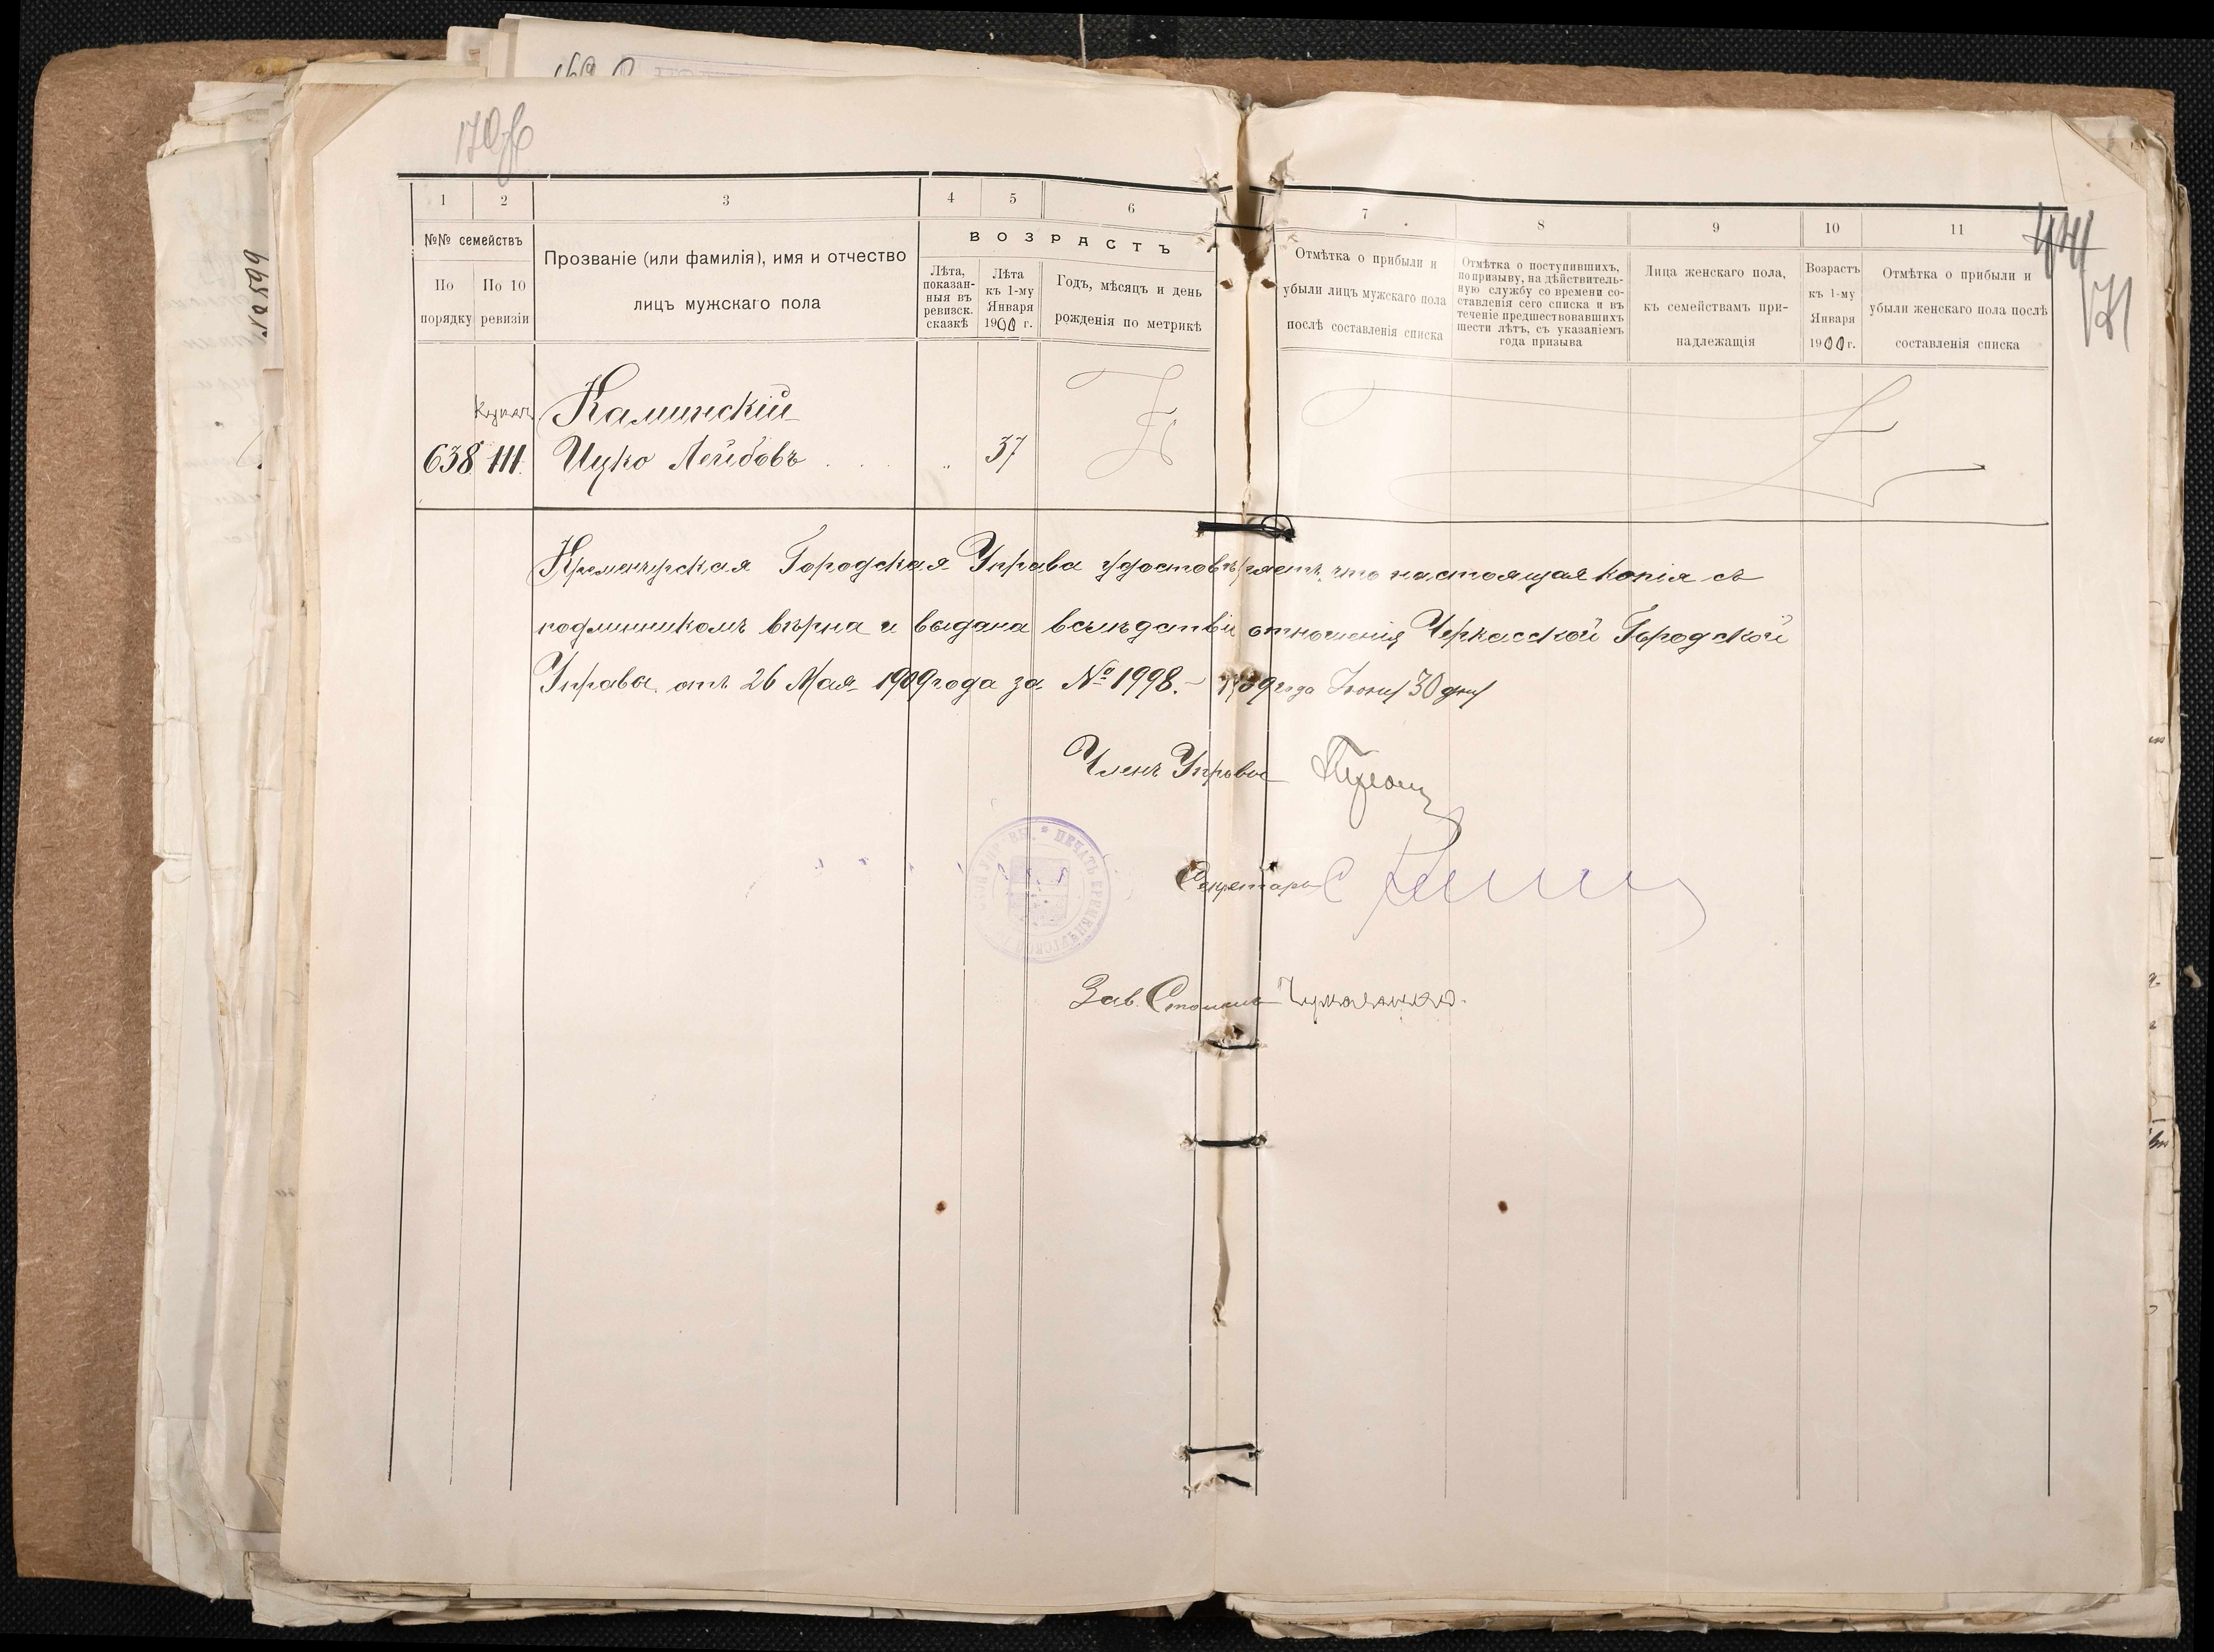 170
1 2 3 4 5 6
№№ семействъ
По порядку
По 10 ревизіи
Прозваніе (или фамилія), имя и отчество
лицъ мужскаго пола
ВОЗРАСТЪ
Лѣта,
показан-
ныя въ
ревизск.
сказкѣ
Лѣта
къ 1-му
Января
1900 г.
Годъ, мѣсяцъ и день
рожденія по метрикѣ
7 8 9 10 11
Отмѣтка о прибыли и
убыли лицъ мужскаго пола
послѣ составленія списка
Отмѣтка о поступившихъ,
по призыву, на дѣйствитель-
ную службу со времени со-
ставленія сего списка и въ
теченіе предшествовавшихъ
шести лѣтъ, съ указаніемъ
года призыва
Лица женскаго пола,
къ семействамъ при-
надлежащія
Возрастъ
къ 1-му
Января
1900 г.
Отмѣтка о прибыли и
убыли женскаго пола послѣ
составленія списка
171
Каминскій
638 Ицко Лейбовъ 37
Кременчугская Городская Управа удостовѣряетъ, что настоящая копія съ
подлинникомъ вѣрна и выдана вслѣдствіе отношенія Черкасской Городской
Управы отъ 26 Мая 1909 года за № 1998. – 1909 года Іюня 30 дня
Членъ Управы
ПЕЧАТЬ КРЕМЕНЧУГСКОЙ
Секретарь
Зав. Столомъ
№ 599